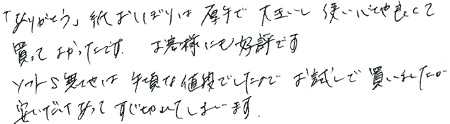 「ありがとう」紙おしぼりは厚手で大きいし使い心地も良くて
買ってよかったです。お客様にも好評です
ソフトS無地は手頃な値段でしたのでお試しで買いましたが
安いだけあってすぐ切れてしまいます。